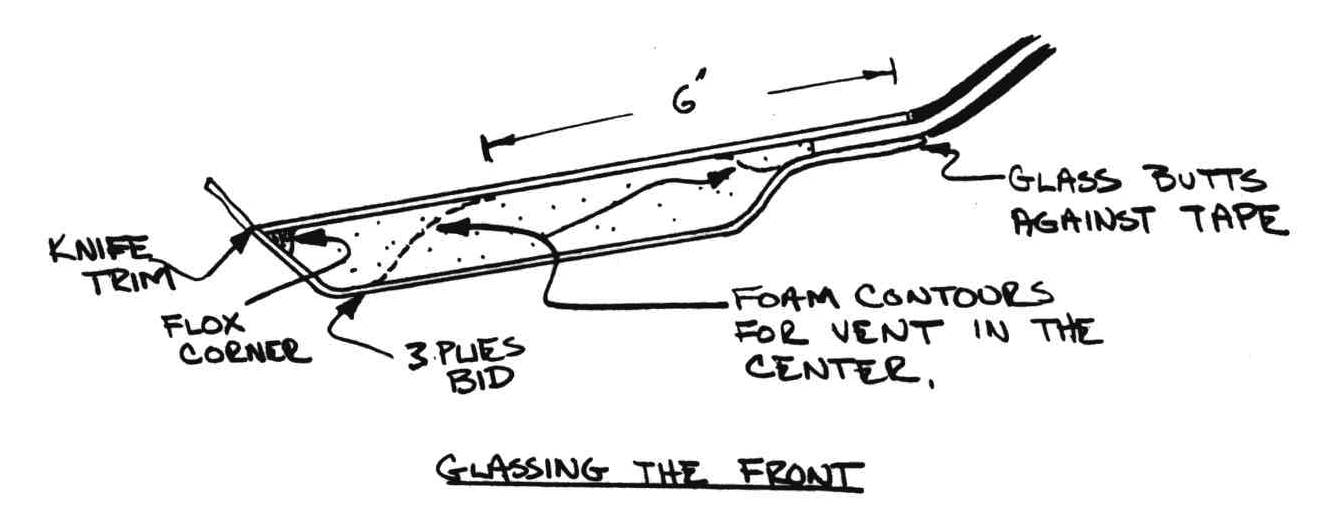 6"
GLASS BUTTS
AGAINST TAPE
KNIFE
TRIM
FLOX
CORNER
3 PLIES
BID
FOAM CONTOURS
FOR VENT IN THE
CENTER.
GLASSING THE FRONT